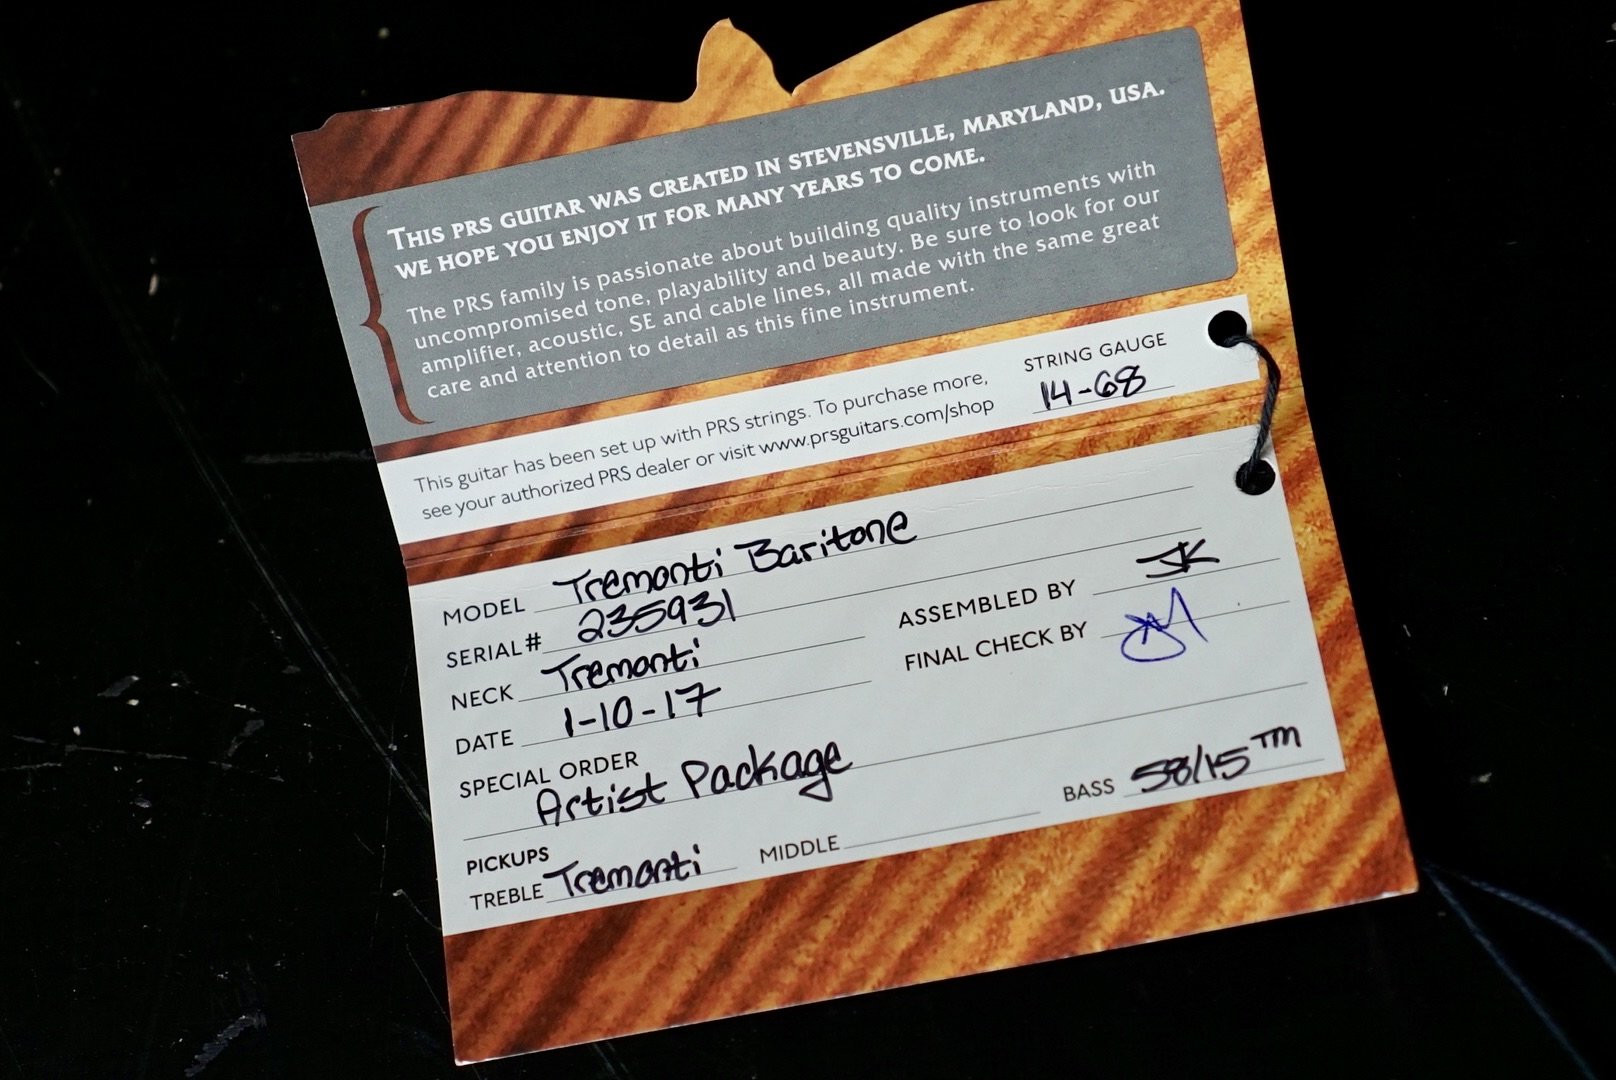 THIS PRS GUITAR WAS CREATED IN STEVENSVILLE, MARYLAND, USA.
WE HOPE YOU ENJOY IT FOR MANY YEARS TO COME.
The PRS family is passionate about building quality instruments with
uncompromised tone, playability and beauty. Be sure to look for our
amplifier, acoustic, SE and cable lines, all made with the same great
care and attention to detail as this fine instrument.
This guitar has been set up with PRS strings. To purchase more,
see your authorized PRS dealer or visit www.prsguitars.com/shop
STRING GAUGE
14-68
MODEL Tremonti Baritone
SERIAL# 235931
NECK Tremonti
DATE 1-10-17
ASSEMBLED BY JK
FINAL CHECK BY
SPECIAL ORDER
Artist Package
PICKUPS
TREBLE Tremonti MIDDLE BASS 58/15™